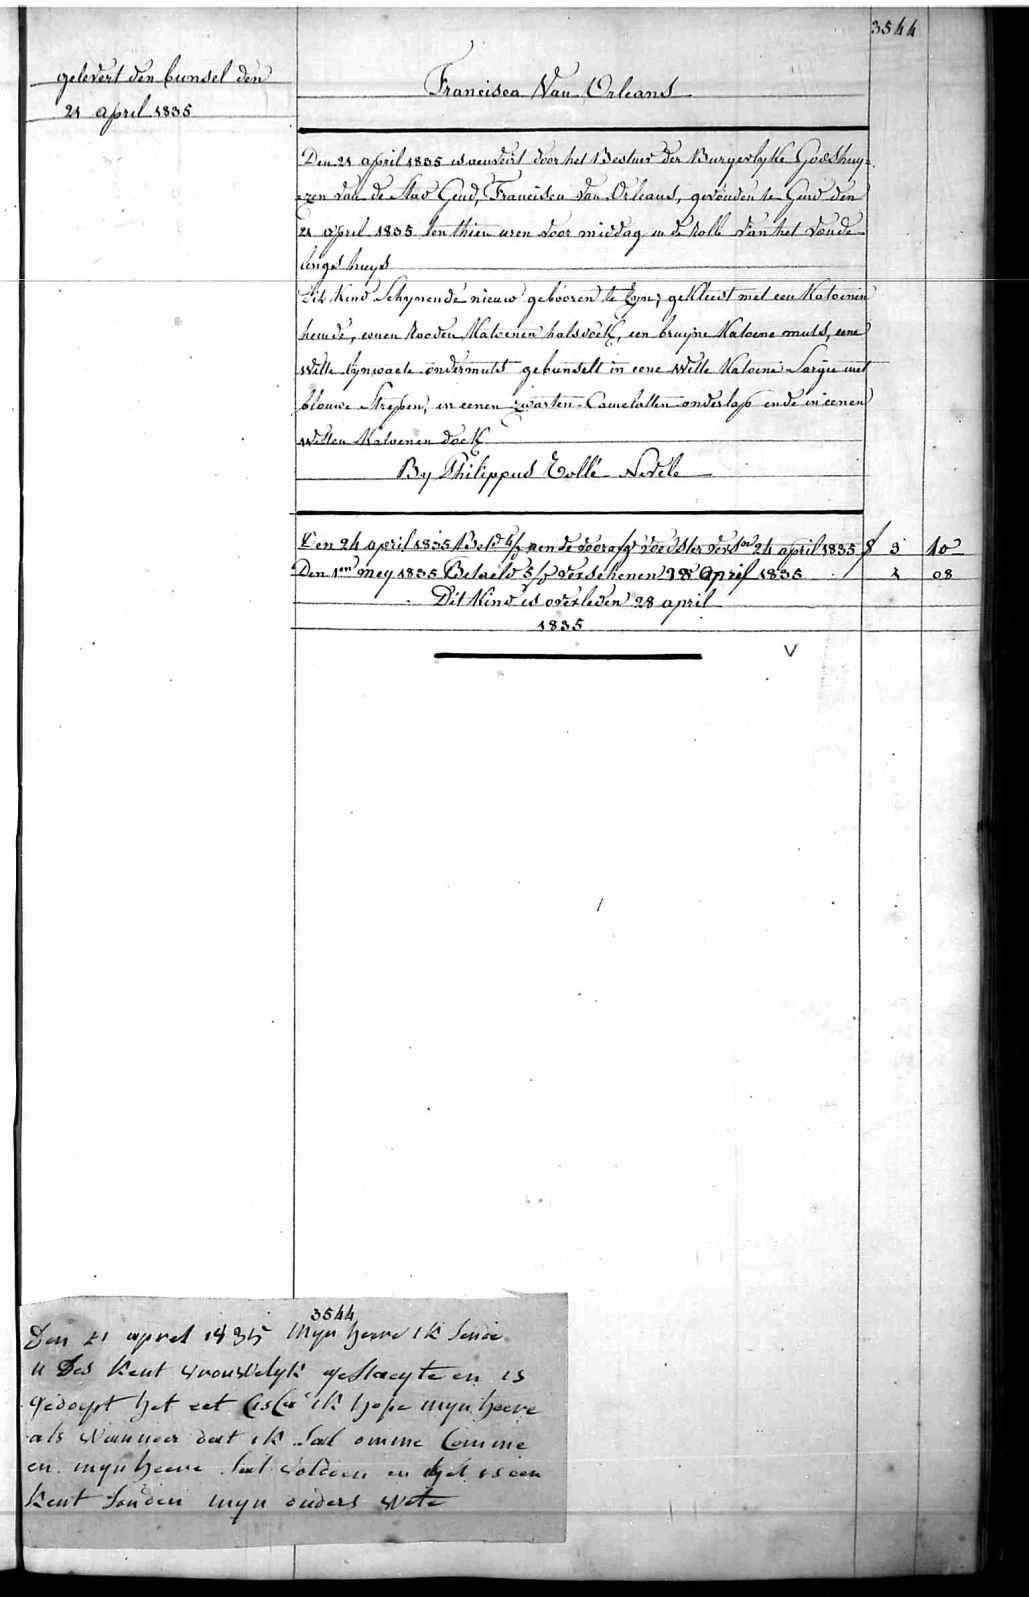 3544
gelevert den bunsel den
21 april 1835
Francisca Van Orleans
Den 21 april 1835 is aenveirt door het Bestuer der Burgerlyke Godshuy=
=zen van de Stad Gend, Francisca Van Orleans, gevonden te Gend den
21 april 1835 ten thien uren voor middag in de rolle van het vonde
lings huys
Dit kind schynende nieuw gebooren te zyn; gekleed met een Katoenen
hemde, eenen Rooden Katoenen halsdoek, een bruyne Katoene muts, eene
witte lynwaete ondermuts gebunselt in eene witte Katoene Sargie met
blouwe Strepen, en eenen zwarten Camelatten onderlap ende in eenen
witten Katoenen doek
By Philippus Tollé Nevele
Den 24 april 1835 Bet.d aen de voedster 24 april 1835 3 10
Den 1en mey 1835 Betaeld verschenen 28 April 1835 08
Dit Kind is overleden 28 april
1835
V
3544
Den 21 aprel 1835 Mijn heere ik sende
u Des kent vrouwelyk geslaeyte en is
gedoept het eet ik hope mijn heere
als wanneer dat ik sal omme Comme
en mijn heere sal voldoen en het is een
kent sonden mijn ouders wete